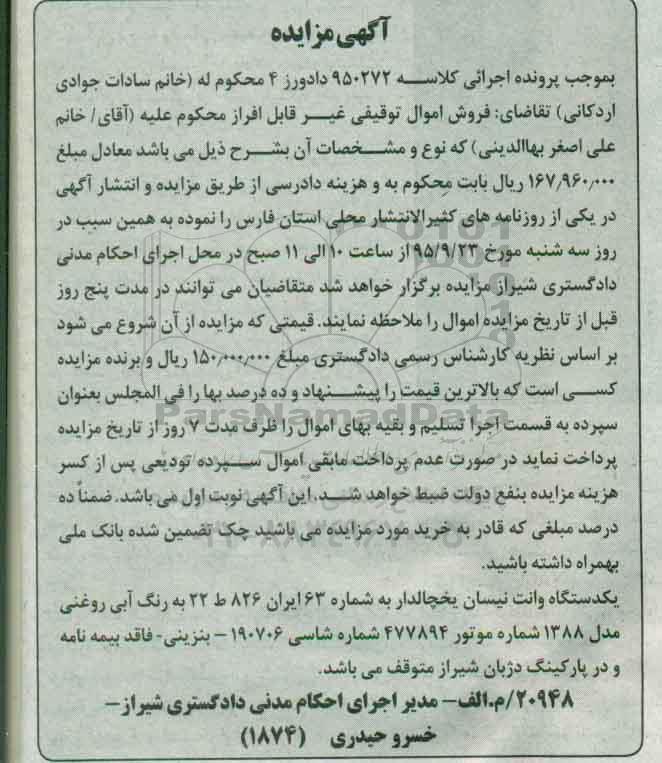 آگهی مزایده
بموجب پرونده اجرائی کلاسه ۹۵۰۲۷۲ دادورز ۴ محکوم له (خانم سادات جوادی
اردکانی) تقاضای: فروش اموال توقیفی غیر قابل افراز محکوم علیه (آقای/ خانم
علی اصغر بهاالدینی) که نوع و مشخصات آن بشرح ذیل می باشد معادل مبلغ
۱۶۷٫۹۶۰٫۰۰۰ ریال بابت محکوم به و هزینه دادرسی از طریق مزایده و انتشار آگهی
در یکی از روزنامه های کثیرالانتشار محلی استان فارس را نموده به همین سبب در
روز سه شنبه مورخ ۹۵/۹/۲۳ از ساعت ۱۰ الی ۱۱ صبح در محل اجرای احکام مدنی
دادگستری شیراز مزایده برگزار خواهد شد متقاضیان می توانند در مدت پنج روز
قبل از تاریخ مزایده اموال را ملاحظه نمایند. قیمتی که مزایده از آن شروع می شود
بر اساس نظریه کارشناس رسمی دادگستری مبلغ ۱۵۰٫۰۰۰٫۰۰۰ ریال و برنده مزایده
کسی است که بالاترین قیمت را پیشنهاد و ده درصد بها را فی المجلس بعنوان
ParsNamadData
سپرده به قسمت اجرا تسلیم و بقیه بهای اموال را ظرف مدت ۷ روز از تاریخ مزایده
پرداخت نماید در صورت عدم پرداخت مابقی اموال سپرده تودیعی پس از کسر
هزینه مزایده بنفع دولت ضبط خواهد شد. این آگهی نوبت اول می باشد. ضمناً ده
درصد مبلغی که قادر به خرید مورد مزایده می باشید چک تضمین شده بانک ملی
بهمراه داشته باشید.
یکدستگاه وانت نیسان یخچالدار به شماره ۶۳ ایران ۸۲۶ ط ۲۲ به رنگ آبی روغنی
مدل ۱۳۸۸ شماره موتور ۴۷۷۸۹۴ شماره شاسی ۱۹۰۷۰۶ – بنزینی- فاقد بیمه نامه
و در پارکینگ دژبان شیراز متوقف می باشد.
۲۰۹۴۸/م.الف- مدیر اجرای احکام مدنی دادگستری شیراز-
خسرو حیدری (۱۸۷۴)